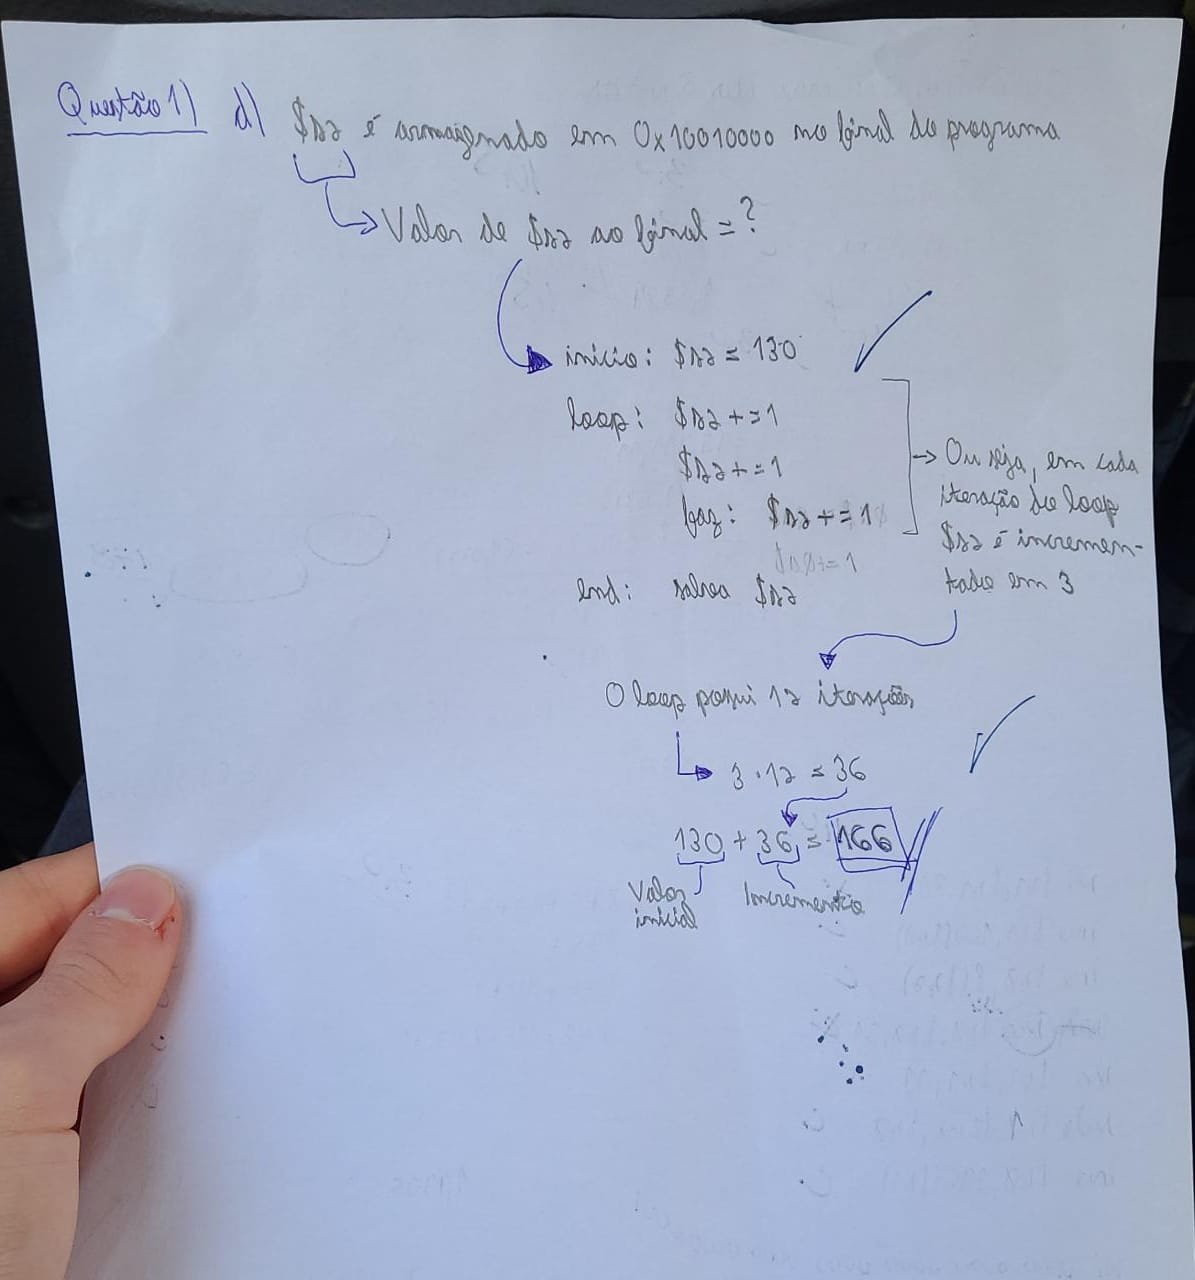 Questão 1) d) $s2 é armazenado em 0x10010000 no final do programa
Valor de $s2 ao final = ?
início: $s2 = 130
loop: $s2 += 1
$s2 += 1
faz: $s2 += 1
end: salva $s2
→ Ou seja, em cada
iteração do loop
$s2 é incremen-
tado em 3
O loop possui 12 iterações
3 · 12 = 36
130 + 36 = 166
Valor
inicial
Incremento